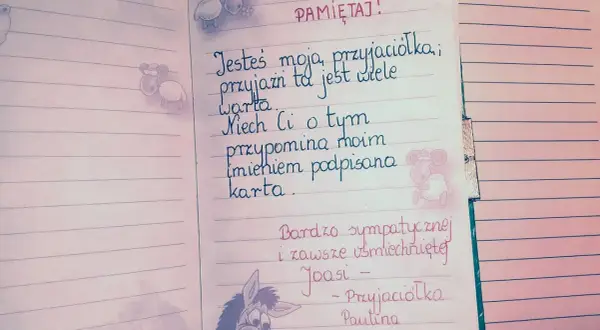 PAMIĘTAJ!
Jesteś moją przyjaciółką, i
przyjaźń ta jest wiele
warta.
Niech Ci o tym
przypomina moim
imieniem podpisana
karta.
Bardzo sympatycznej
i zawsze uśmiechniętej
Joasi -
- Przyjaciółka
Paulina